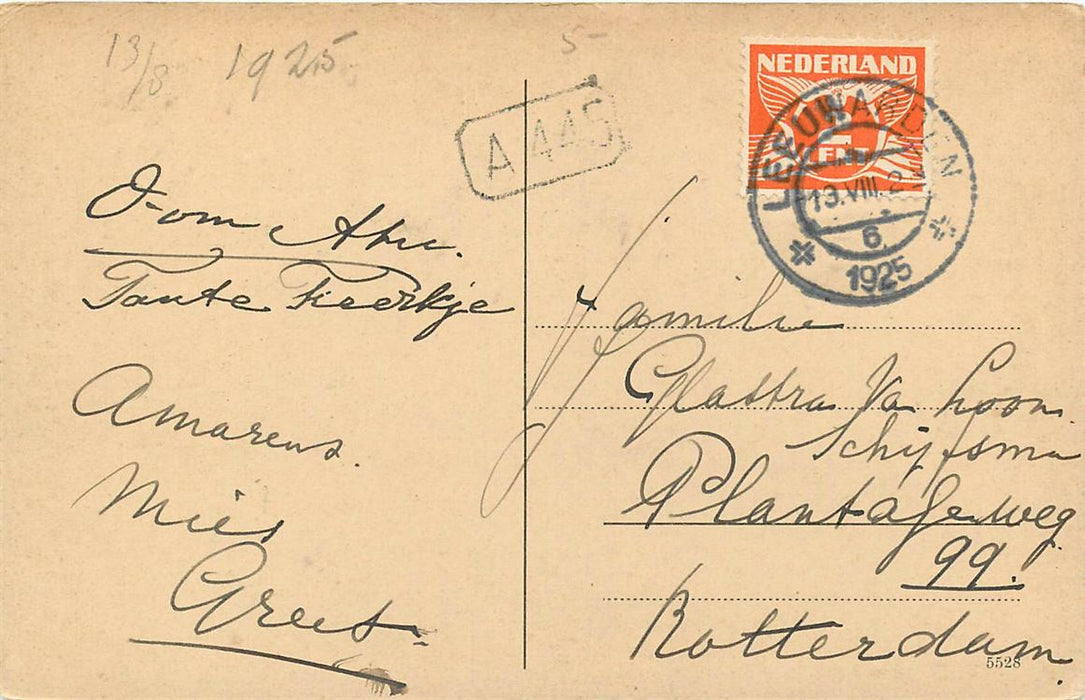 13/8 1925
5-
A 445
NEDERLAND
2
CENT
LEEUWARDEN
13.VIII.2
6
1925
Oom
Tante Feerkje
Amarens.
Mies
Greet.
Familie
Glastra Van Loon
Schijfsma
Plantageweg
99.
Rotterdam
5528